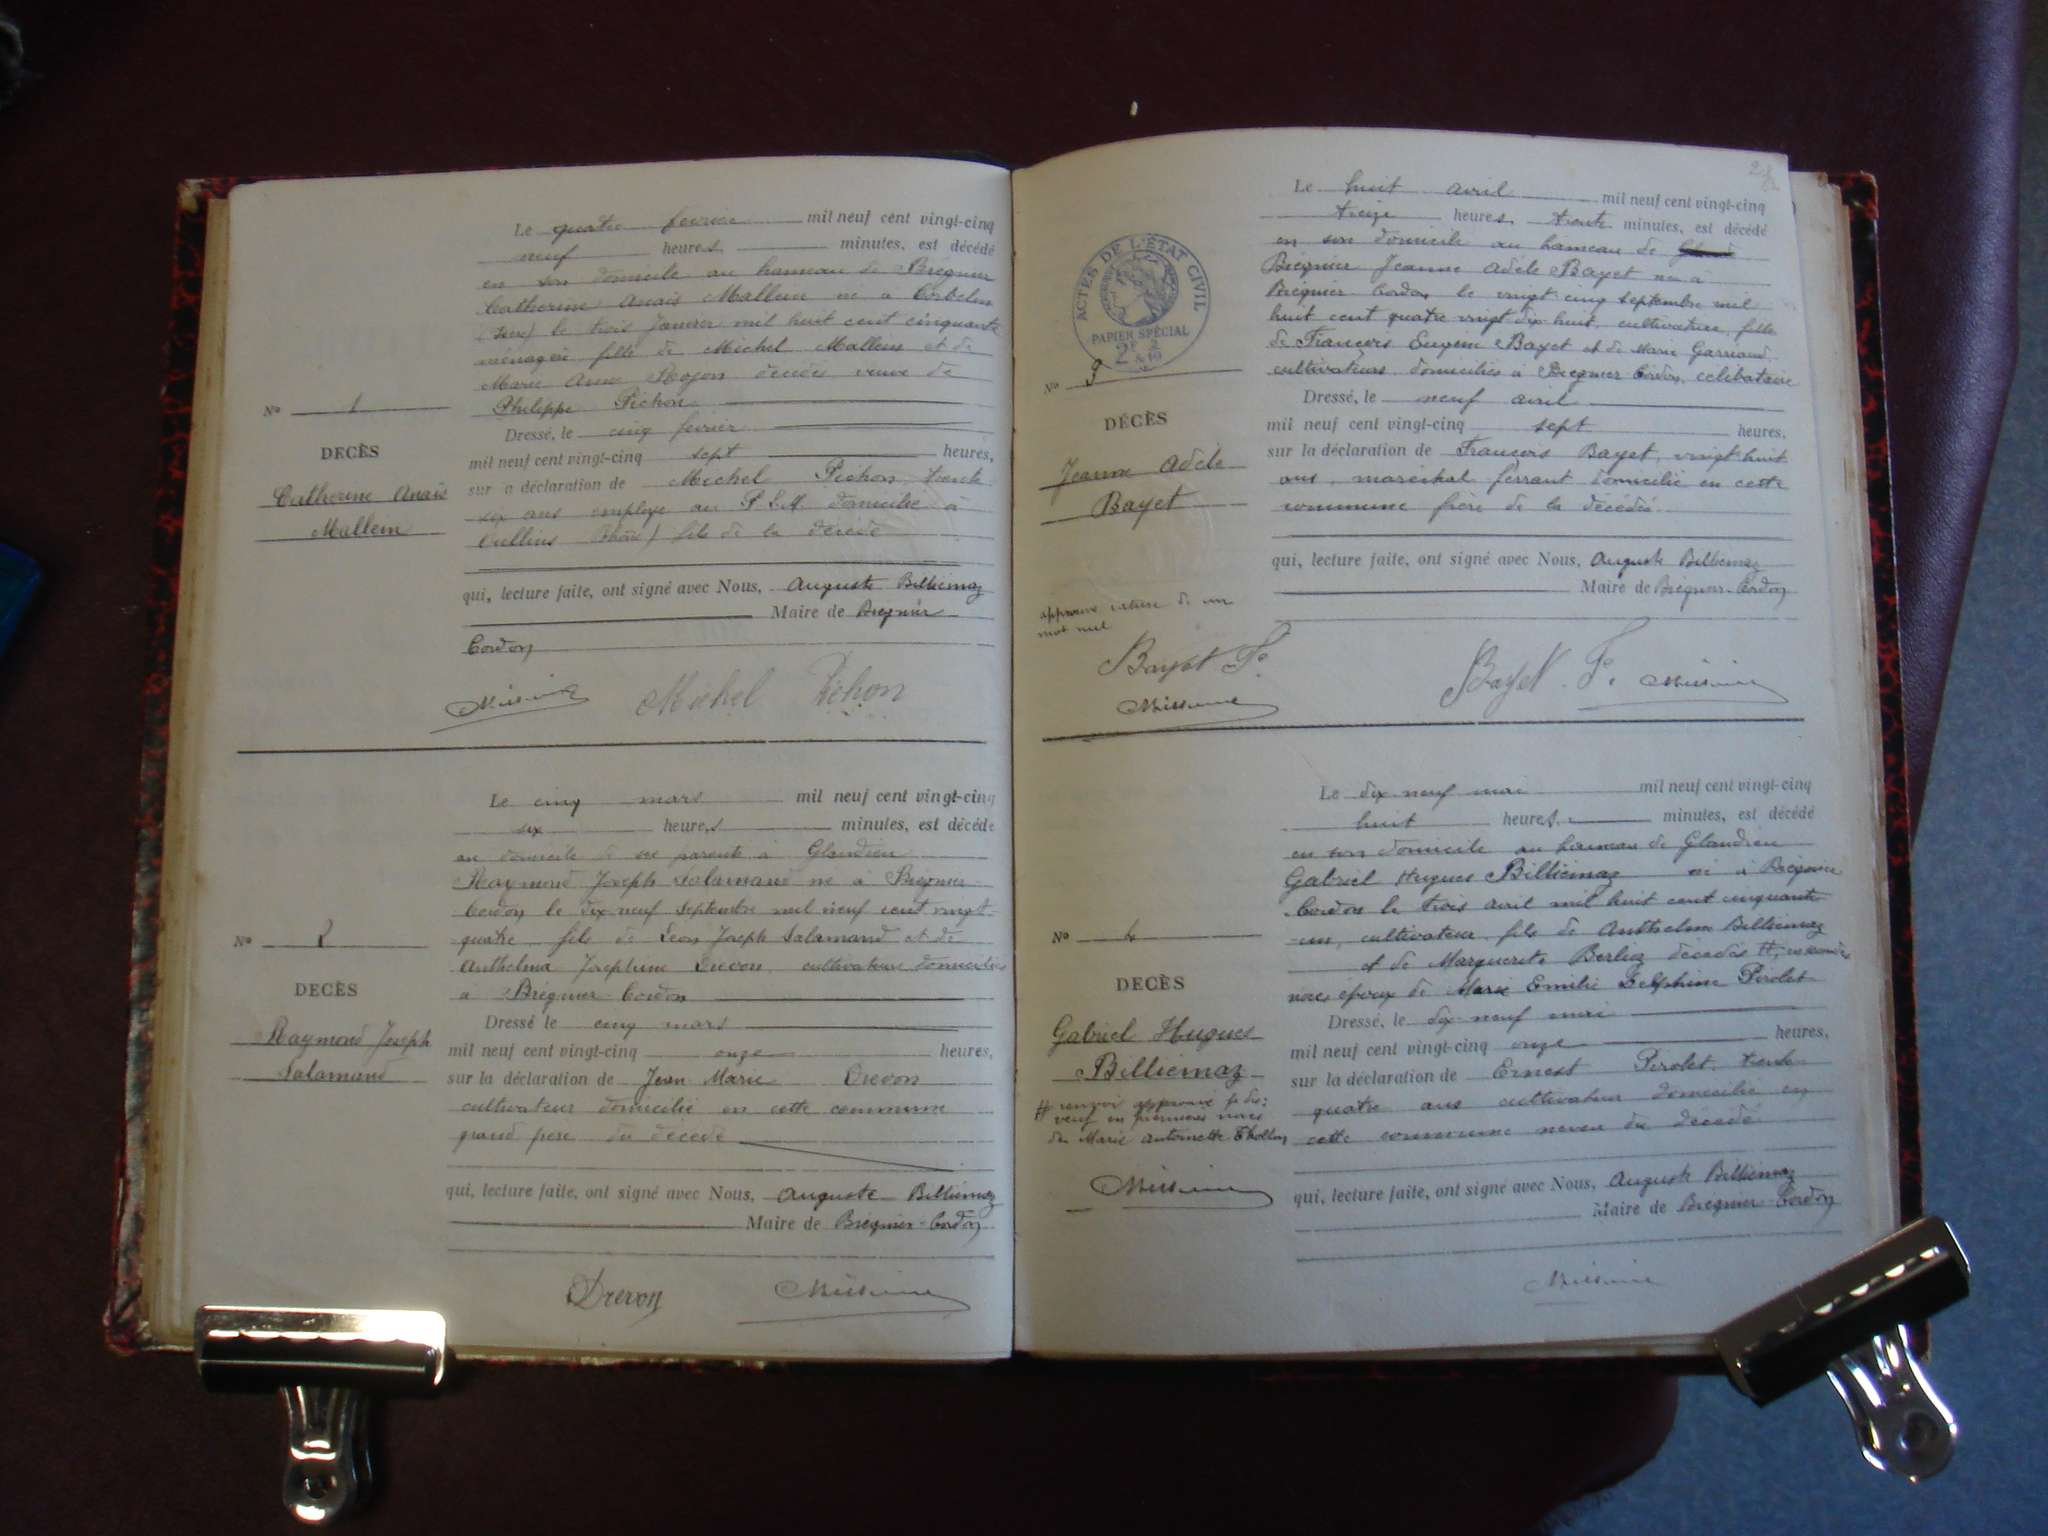 Le quatre fevrier mil neuf cent vingt-cinq
neuf heures minutes, est décédé
en son domicile au hameau de Brégnier
Catherine Anaïs Mallein né à Corbelin
le trois Janvier mil huit cent cinquante
ménagère fille de Michel Mallein et de
Marie Anne décédés veuve de
Philippe Pichon
Nº 1
Dressé, le cinq fevrier
DECÈS
mil neuf cent vingt-cinq sept heures,
Catherine Anaïs
sur a déclaration de Michel Pichon, trente
Mallein
six ans employé au P.L.M. domicilié à
Oullins (Rhône) fils de la décédé
qui, lecture faite, ont signé avec Nous, Auguste Billiemaz
Maire de Brégnier
Cordon
Michel Pichon
Le cinq mars mil neuf cent vingt-cinq
six heures minutes, est décédé
au domicile de ses parents à Glandieu
Raymond Joseph Salamand né à Brégnier
Cordon le dix neuf Septembre mil neuf cent vingt
quatre fils de Leon Joseph Salamand et de
Nº 2
Anthelma Josephine Drevon, cultivateurs domiciliés
à Brégnier-Cordon
DECÈS
Dressé le cinq mars
Raymond Joseph
Salamand
mil neuf cent vingt-cinq onze heures,
sur la déclaration de Jean Marie Drevon
cultivateur domicilié en cette commune
grand père du décédé
qui, lecture faite, ont signé avec Nous, Auguste Billiemaz
Maire de Brégnier-Cordon
Drevon
Le huit avril mil neuf cent vingt-cinq
treize heures trente minutes, est décédé
en son domicile au hameau de
Brégnier Jeanne Adèle Bayet né à
Brégnier Cordon le vingt cinq septembre mil
huit cent quatre vingt dix huit, cultivateur, fille
de François Eugène Bayet et de Marie
cultivateurs domiciliés à Brégnier Cordon, célibataire
ACTES DE L'ÉTAT CIVIL
PAPIER SPÉCIAL
Nº 3
Dressé, le neuf avril
DÉCÈS
mil neuf cent vingt-cinq sept heures,
Jeanne Adèle
Bayet
sur la déclaration de François Bayet, vingt huit
ans, maréchal ferrant domicilié en cette
commune frère de la décédée
qui, lecture faite, ont signé avec Nous, Auguste Billiemaz
Maire de Brégnier-Cordon
approuvé rature de un
mot nul
Bayet F.
Bayet F.
Le dix neuf mai mil neuf cent vingt-cinq
huit heures minutes, est décédé
en son domicile au hameau de Glandieu
Gabriel Hugues Billiemaz né à Brégnier
Cordon le trois avril mil huit cent cinquante
un, cultivateur, fils de Anthelme Billiemaz
Nº 4
et de Marguerite Berlioz décédés #, en secondes
noces epoux de Marie Emilie Delphine Pirolet
DÉCÈS
Dressé, le dix neuf mai
Gabriel Hugues
Billiemaz
mil neuf cent vingt-cinq onze heures,
sur la déclaration de Ernest Pirolet, trente
quatre ans cultivateur domicilié en
cette commune neveu du décédé
# renvoi approuvé
veuf en premières noces
de Marie Antoinette
qui, lecture faite, ont signé avec Nous, Auguste Billiemaz
Maire de Brégnier-Cordon